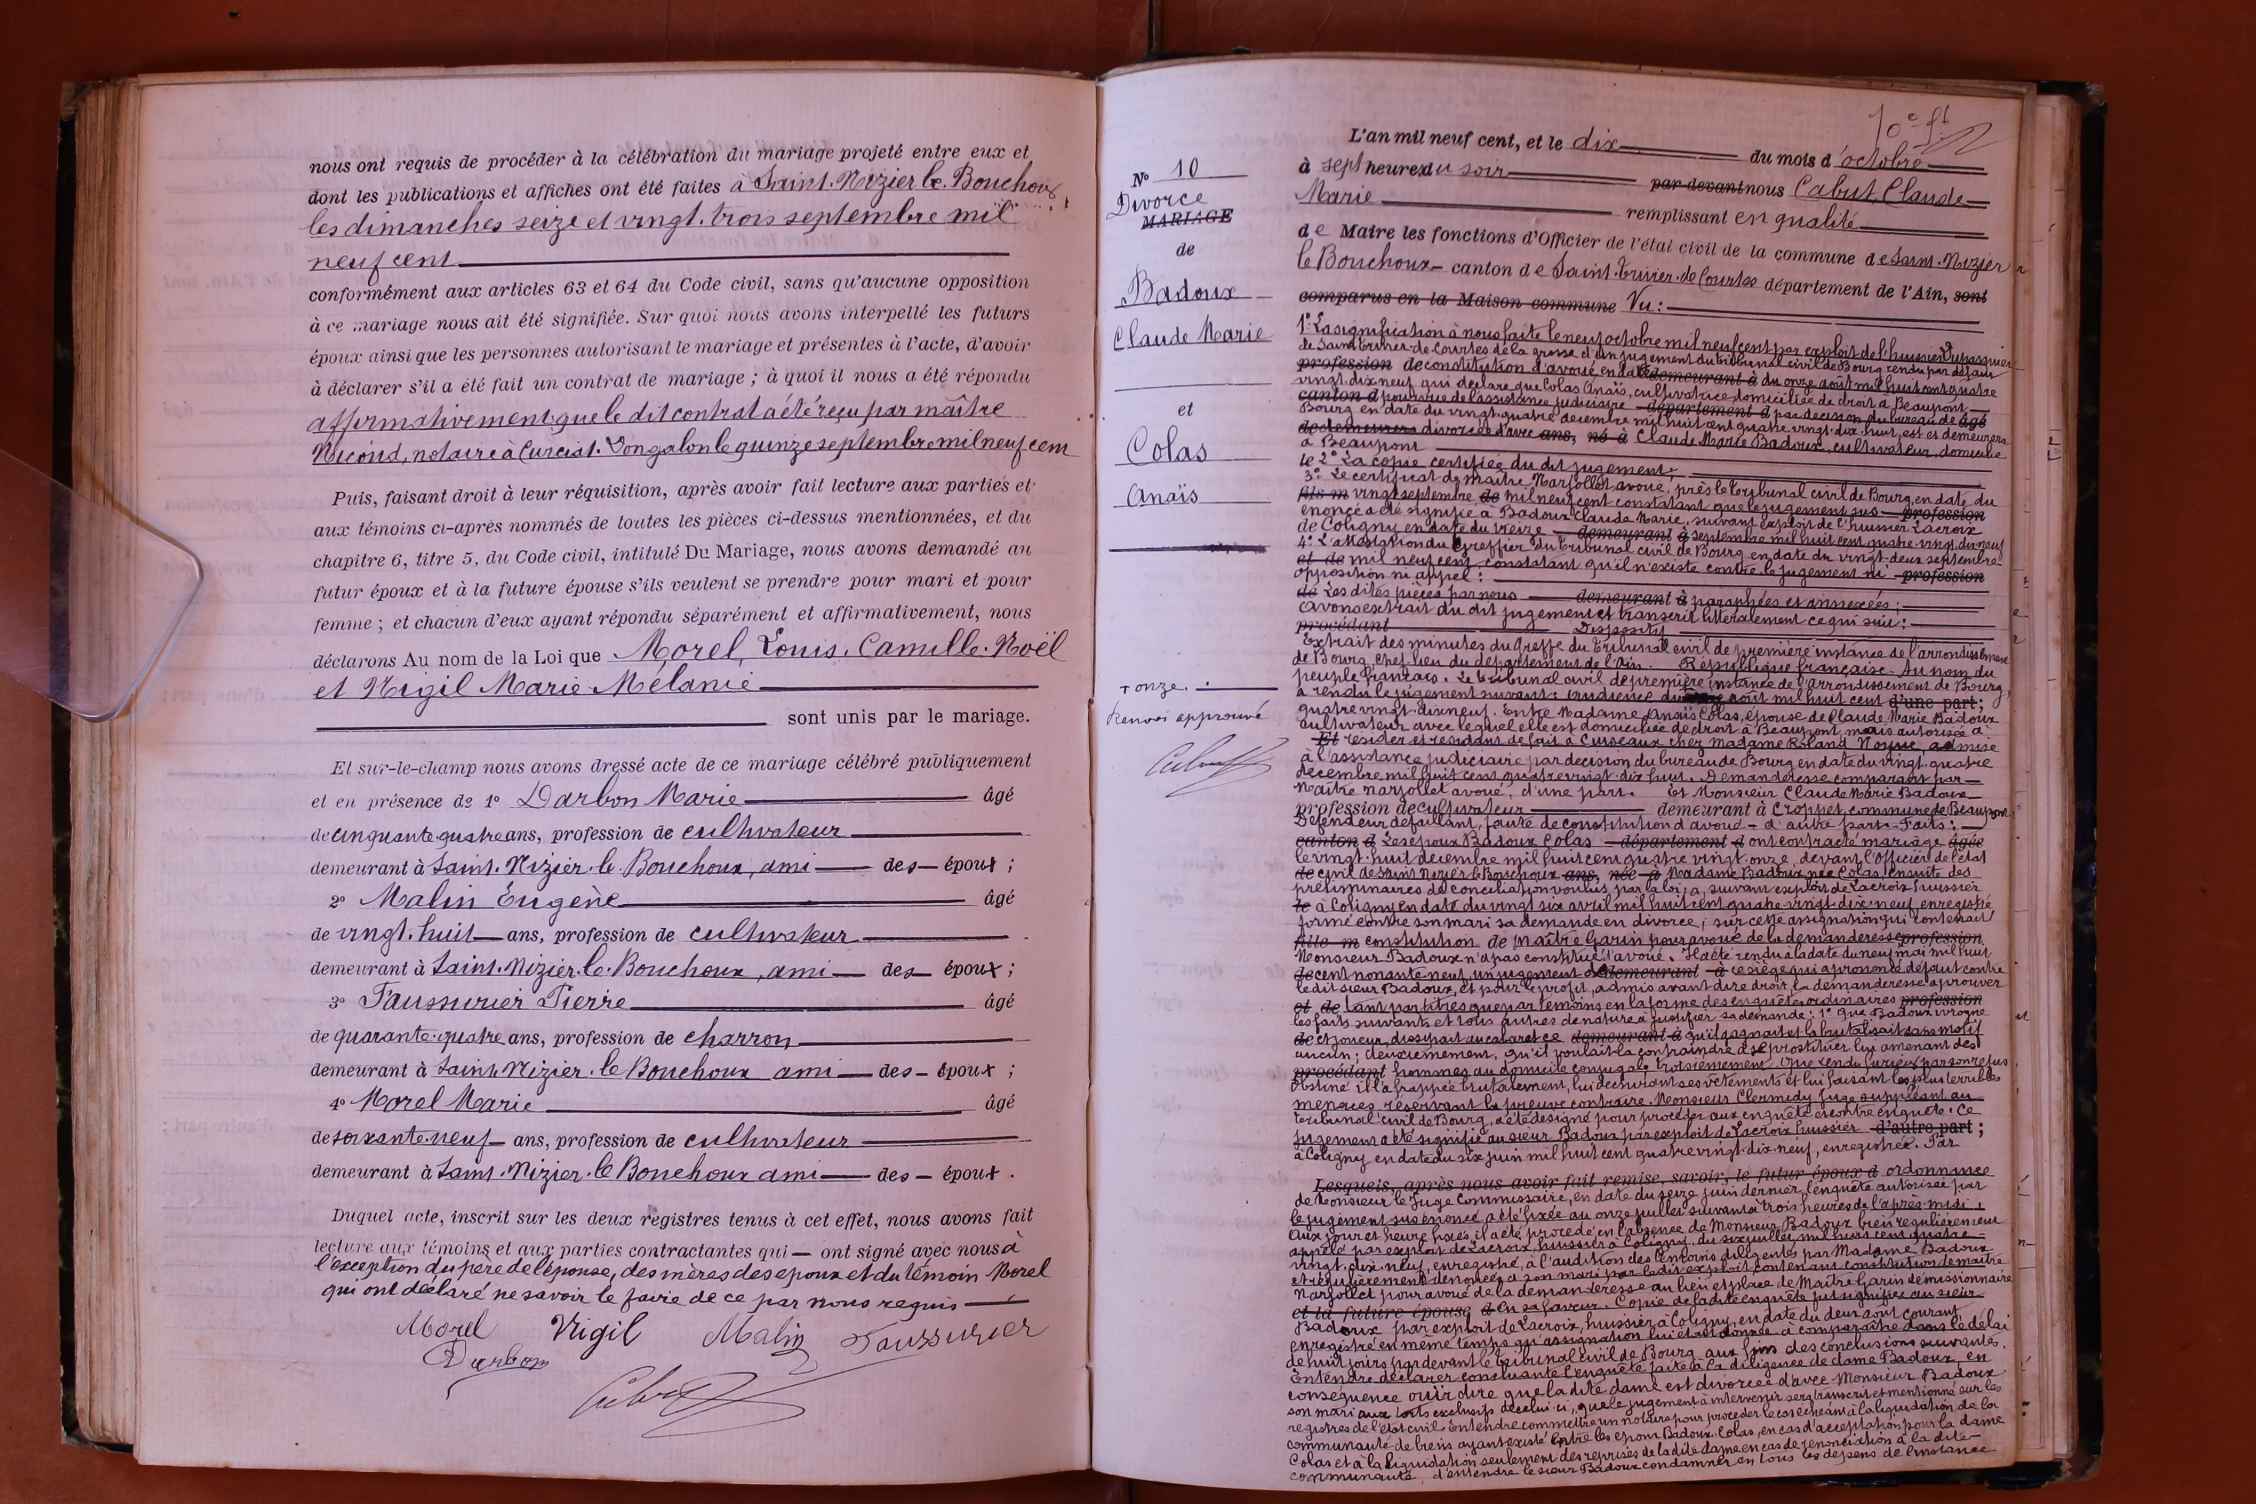 nous ont requis de procéder à la célébration du mariage projeté entre eux et
dont les publications et affiches ont été faites à Saint-Nizier-le-Bouchoux
les dimanches seize et vingt-trois septembre mil
neuf cent
conformément aux articles 63 et 64 du Code civil, sans qu'aucune opposition
à ce mariage nous ait été signifiée. Sur quoi nous avons interpellé les futurs
époux ainsi que les personnes autorisant le mariage et présentes à l'acte, d'avoir
à déclarer s'il a été fait un contrat de mariage ; à quoi il nous a été répondu
affirmativement que le dit contrat a été reçu par maître
notaire à Curciat-Dongalon le quinze septembre mil neuf cent
Puis, faisant droit à leur réquisition, après avoir fait lecture aux parties et
aux témoins ci-après nommés de toutes les pièces ci-dessus mentionnées, et du
chapitre 6, titre 5, du Code civil, intitulé Du Mariage, nous avons demandé au
futur époux et à la future épouse s'ils veulent se prendre pour mari et pour
femme ; et chacun d'eux ayant répondu séparément et affirmativement, nous
déclarons Au nom de la Loi que Morel, Louis. Camille. Noël
et Vigil Marie Mélanie
sont unis par le mariage.
Et sur-le-champ nous avons dressé acte de ce mariage célébré publiquement
et en présence de 1° Darbon Marie âgé
de cinquante quatre ans, profession de cultivateur
demeurant à Saint-Nizier-le-Bouchoux, ami des époux ;
2° Malin Eugène âgé
de vingt-huit ans, profession de cultivateur
demeurant à Saint-Nizier-le-Bouchoux, ami des époux ;
3° Faussurier Pierre âgé
de quarante-quatre ans, profession de charron
demeurant à Saint-Nizier-le-Bouchoux ami des époux ;
4° Morel Marie âgé
de soixante-neuf ans, profession de cultivateur
demeurant à Saint-Nizier-le-Bouchoux ami des époux.
Duquel acte, inscrit sur les deux registres tenus à cet effet, nous avons fait
lecture aux témoins et aux parties contractantes qui ont signé avec nous à
l'exception du père de l'épouse, des mères des époux et du témoin Morel
qui ont déclaré ne savoir le faire de ce par nous requis
Morel Vigil Malin Faussurier
Darbon
N° 10
Divorce
MARIAGE
de
Badoux
Claude Marie
et
Colas
Anaïs
+ onze.
Renvoi approuvé
L'an mil neuf cent, et le dix du mois d'octobre
à sept heures du soir par devant nous Cabut, Claude
Marie remplissant en qualité
de Maire les fonctions d'Officier de l'état civil de la commune de Saint-Nizier
le Bouchoux canton de Saint-Trivier-de-Courtes département de l'Ain, sont
comparus en la Maison commune Vu :
1° La signification à nous faite le neuf octobre mil neuf cent par exploit de l'huissier
de Saint-Trivier-de-Courtes de la grosse d'un jugement du tribunal civil de Bourg rendu par défaut
profession de constitution d'avoué en date demeurant à du onze août mil huit cent quatre
vingt-dix-neuf qui déclare que Colas Anaïs, cultivatrice, domiciliée de droit à Beaupont
canton d pourvue de l'assistance judiciaire département d par décision du bureau de âgé
Bourg en date du vingt-quatre décembre mil huit cent quatre vingt-dix-huit, est et demeurera
divorcée d'avec ans, né à Claude Marie Badoux, cultivateur, domicilié
à Beaupont
le 2° La copie certifiée du dit jugement ;
3° Le certificat de maître Marjollet avoué, près le tribunal civil de Bourg, en date du
fils m vingt septembre de mil neuf cent constatant que le jugement sus profession
énoncé a été signifié à Badoux Claude Marie, suivant exploit de l'huissier Lacroix
de Coligny en date du treize demeurant à septembre mil huit cent quatre-vingt-dix-neuf
4° L'attestation du greffier du tribunal civil de Bourg en date du vingt-deux septembre
et de mil neuf cent, constatant qu'il n'existe contre le jugement ni profession
opposition ni appel :
de Les dites pièces par nous demeurant à paraphées et annexées ;
Avons extrait du dit jugement et transcrit littéralement ce qui suit :
procédant Dispositif
Extrait des minutes du Greffe du Tribunal civil de première instance de l'arrondissement
de Bourg, chef-lieu du département de l'Ain. République française. Au nom du
peuple français. Le tribunal civil de première instance de l'arrondissement de Bourg,
a rendu le jugement suivant : audience du août mil huit cent d'une part ;
quatre vingt-dix-neuf. Entre Madame Anaïs Colas, épouse de Claude Marie Badoux
cultivateur avec lequel elle est domiciliée de droit à Beaupont, mais autorisée à
Et résider et résidant de fait à Cuiseaux chez Madame Roland admise
à l'assistance judiciaire par décision du bureau de Bourg en date du vingt-quatre
décembre mil huit cent quatre vingt-dix-huit. Demanderesse comparant par
Maître Marjollet avoué, d'une part. Et Monsieur Claude Marie Badoux
profession de cultivateur demeurant à Croppet, commune de Beaupont
Défendeur défaillant, faute de constitution d'avoué d'autre part. Faits :
canton d Les époux Badoux Colas département d ont contracté mariage âgée
le vingt-huit décembre mil huit cent quatre vingt-onze, devant l'Officier de l'état
de civil de Saint Nizier le Bouchoux ans, née à Madame Badoux née Colas, ensuite des
préliminaires de conciliation voulus par la loi, a, suivant exploit de Lacroix huissier
le à Coligny en date du vingt six avril mil huit cent quatre-vingt-dix-neuf, enregistré
formé contre son mari sa demande en divorce ; sur cette assignation qui contenait
fille m constitution de Maître Garin pour avoué de la demanderesse profession
Monsieur Badoux n'a pas constitué d'avoué. Il a été rendu à la date du neuf mai mil huit
de cent nonante-neuf, un jugement demeurant à ce siège qui a prononcé défaut contre
le dit sieur Badoux, et pour le profit, admis avant dire droit, la demanderesse à prouver
et de tant par titres que par témoins en la forme des enquêtes ordinaires profession
les faits suivants et tous autres de nature à justifier sa demande : 1° Que Badoux ivrogne
de et joueur, dissipait au cabaret ce demeurant à qu'il gagnait et la brutalisait sans motif
aucun ; deuxièmement, qu'il voulait la contraindre à se prostituer lui amenant des
procédant hommes au domicile conjugal ; troisièmement Que rendu furieux par son refus
obstiné il l'a frappée brutalement, lui déchirant ses vêtements et lui faisant les plus terribles
menaces, réservant la preuve contraire. Monsieur Clermidy juge suppléant au
tribunal civil de Bourg, a été désigné pour procéder aux enquête et contre enquête. Ce
jugement a été signifié au sieur Badoux par exploit de Lacroix huissier d'autre part ;
à Coligny en date du six juin mil huit cent quatre vingt-dix-neuf, enregistrée. Par
Lesquels, après nous avoir fait remise, savoir, le futur époux d ordonnance
de Monsieur le Juge Commissaire, en date du seize juin dernier, l'enquête autorisée par
le jugement sus énoncé, a été fixée au onze juillet suivant à trois heures de l'après-midi.
Aux jour et heure fixés, il a été procédé en l'absence de Monsieur Badoux bien régulièrement
appelé par exploit de Lacroix, huissier à Coligny, du six juillet mil huit cent quatre
vingt-dix-neuf, enregistré, à l'audition des témoins diligentés par Madame Badoux
et régulièrement dénoncés à son mari par le dit exploit contenant constitution de maître
Marjollet pour avoué de la demanderesse au lieu et place de Maître Garin démissionnaire
et la future épouse d en sa faveur. Copie de la dite enquête fut signifiée au sieur
Badoux par exploit de Lacroix, huissier à Coligny, en date du deux août courant,
enregistré en même temps qu'assignation lui était donnée à comparaître dans le délai
de huit jours par devant le tribunal civil de Bourg aux fins des conclusions suivantes.
Entendre déclarer concluante l'enquête faite à la diligence de dame Badoux, en
conséquence ouïr dire que la dite dame est divorcée d'avec Monsieur Badoux
son mari aux torts exclusifs de celui-ci, que le jugement à intervenir sera transcrit et mentionné sur les
registres de l'état civil. Entendre commettre un notaire pour procéder le cas échéant à la liquidation de la
communauté de biens ayant existé entre les époux Badoux Colas, en cas d'acceptation pour la dame
Colas et à la liquidation seulement des reprises de la dite dame en cas de renonciation à la dite
communauté, d'entendre le sieur Badoux condamner en tous les dépens de l'instance